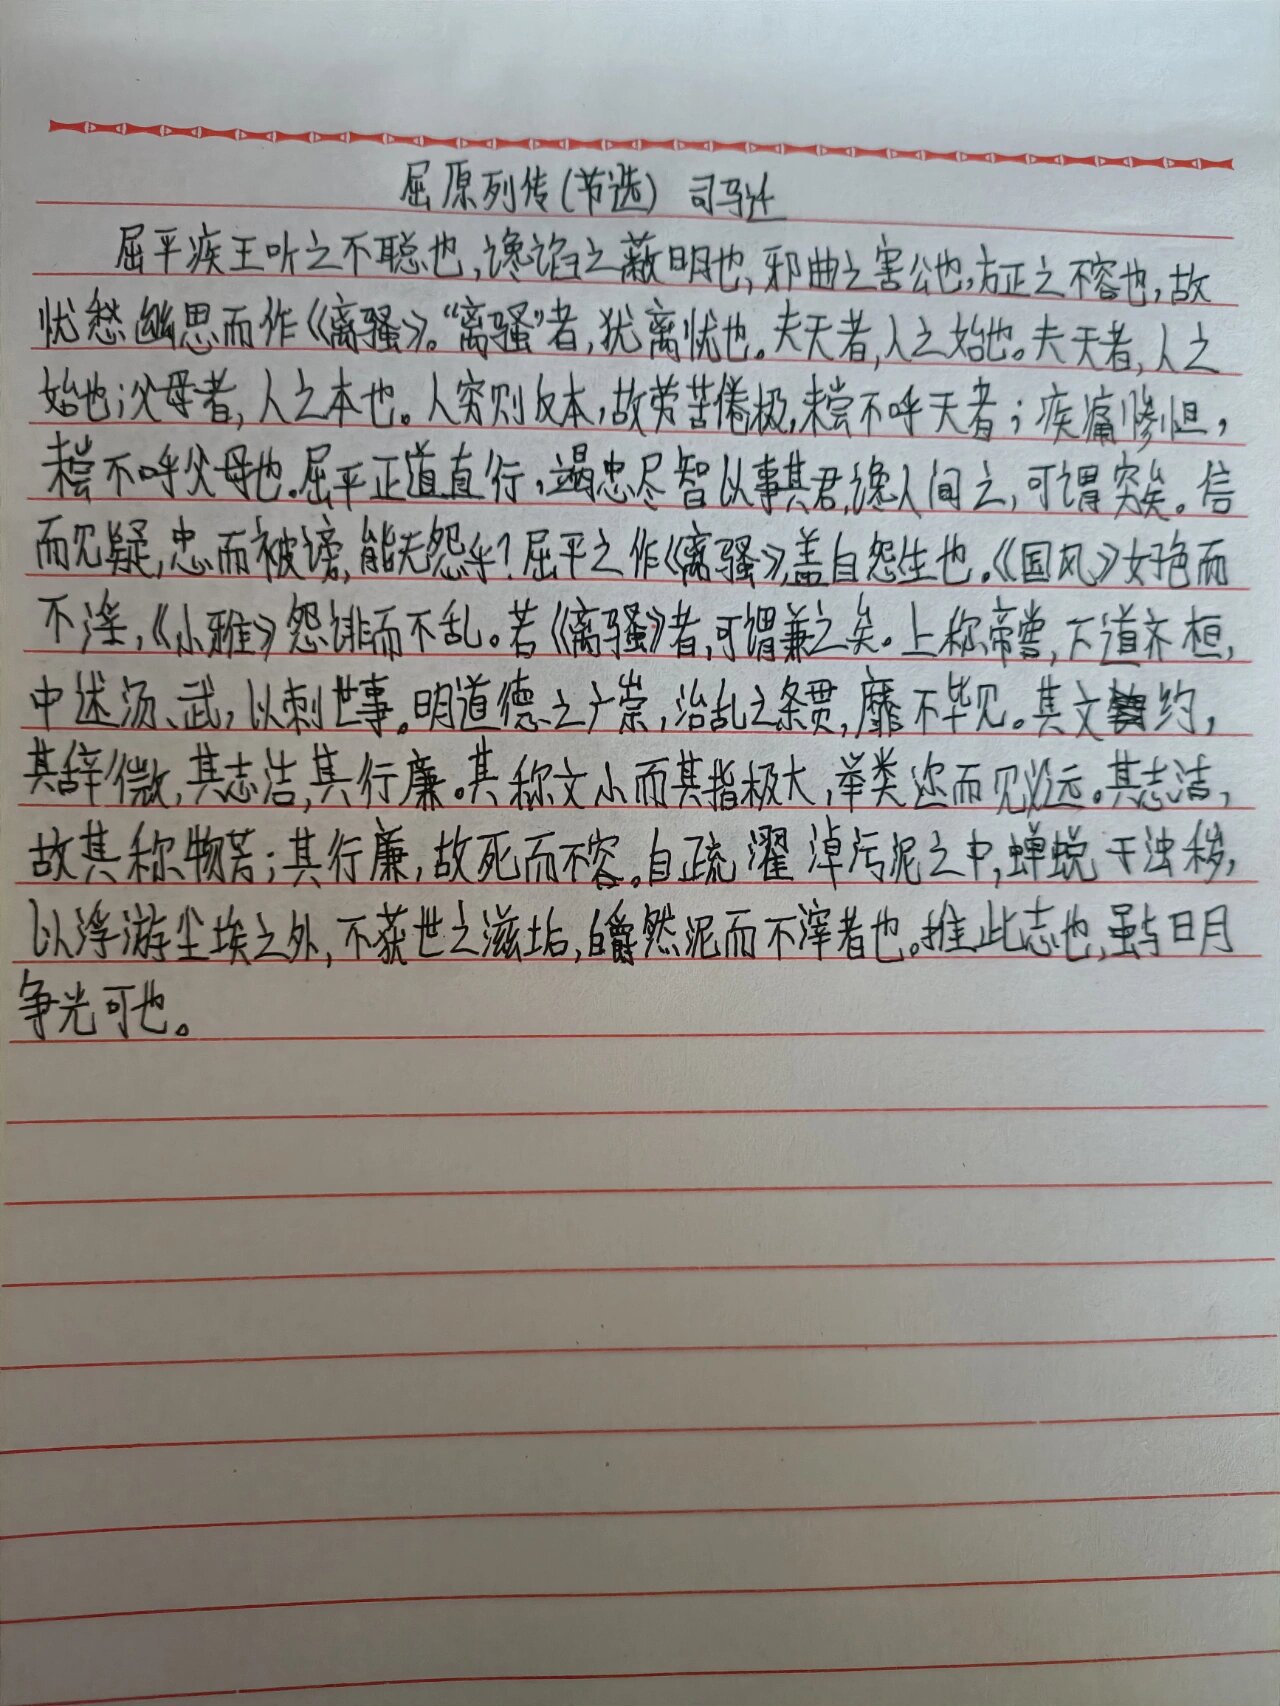 屈原列传(节选) 司马迁
屈平疾王听之不聪也,谗谄之蔽明也,邪曲之害公也,方正之不容也,故
忧愁幽思而作《离骚》。“离骚”者,犹离忧也。夫天者,人之始也。夫天者,人之
始也;父母者,人之本也。人穷则反本,故劳苦倦极,未尝不呼天者;疾痛惨怛,
未尝不呼父母也。屈平正道直行,竭忠尽智以事其君,谗人间之,可谓穷矣。信
而见疑,忠而被谤,能无怨乎?屈平之作《离骚》,盖自怨生也。《国风》好色而
不淫,《小雅》怨诽而不乱。若《离骚》者,可谓兼之矣。上称帝喾,下道齐桓,
中述汤、武,以刺世事。明道德之广崇,治乱之条贯,靡不毕见。其文约,
其辞微,其志洁,其行廉。其称文小而其指极大,举类迩而见义远。其志洁,
故其称物芳;其行廉,故死而不容。自疏濯淖污泥之中,蝉蜕于浊秽,
以浮游尘埃之外,不获世之滋垢,皭然泥而不滓者也。推此志也,虽与日月
争光可也。